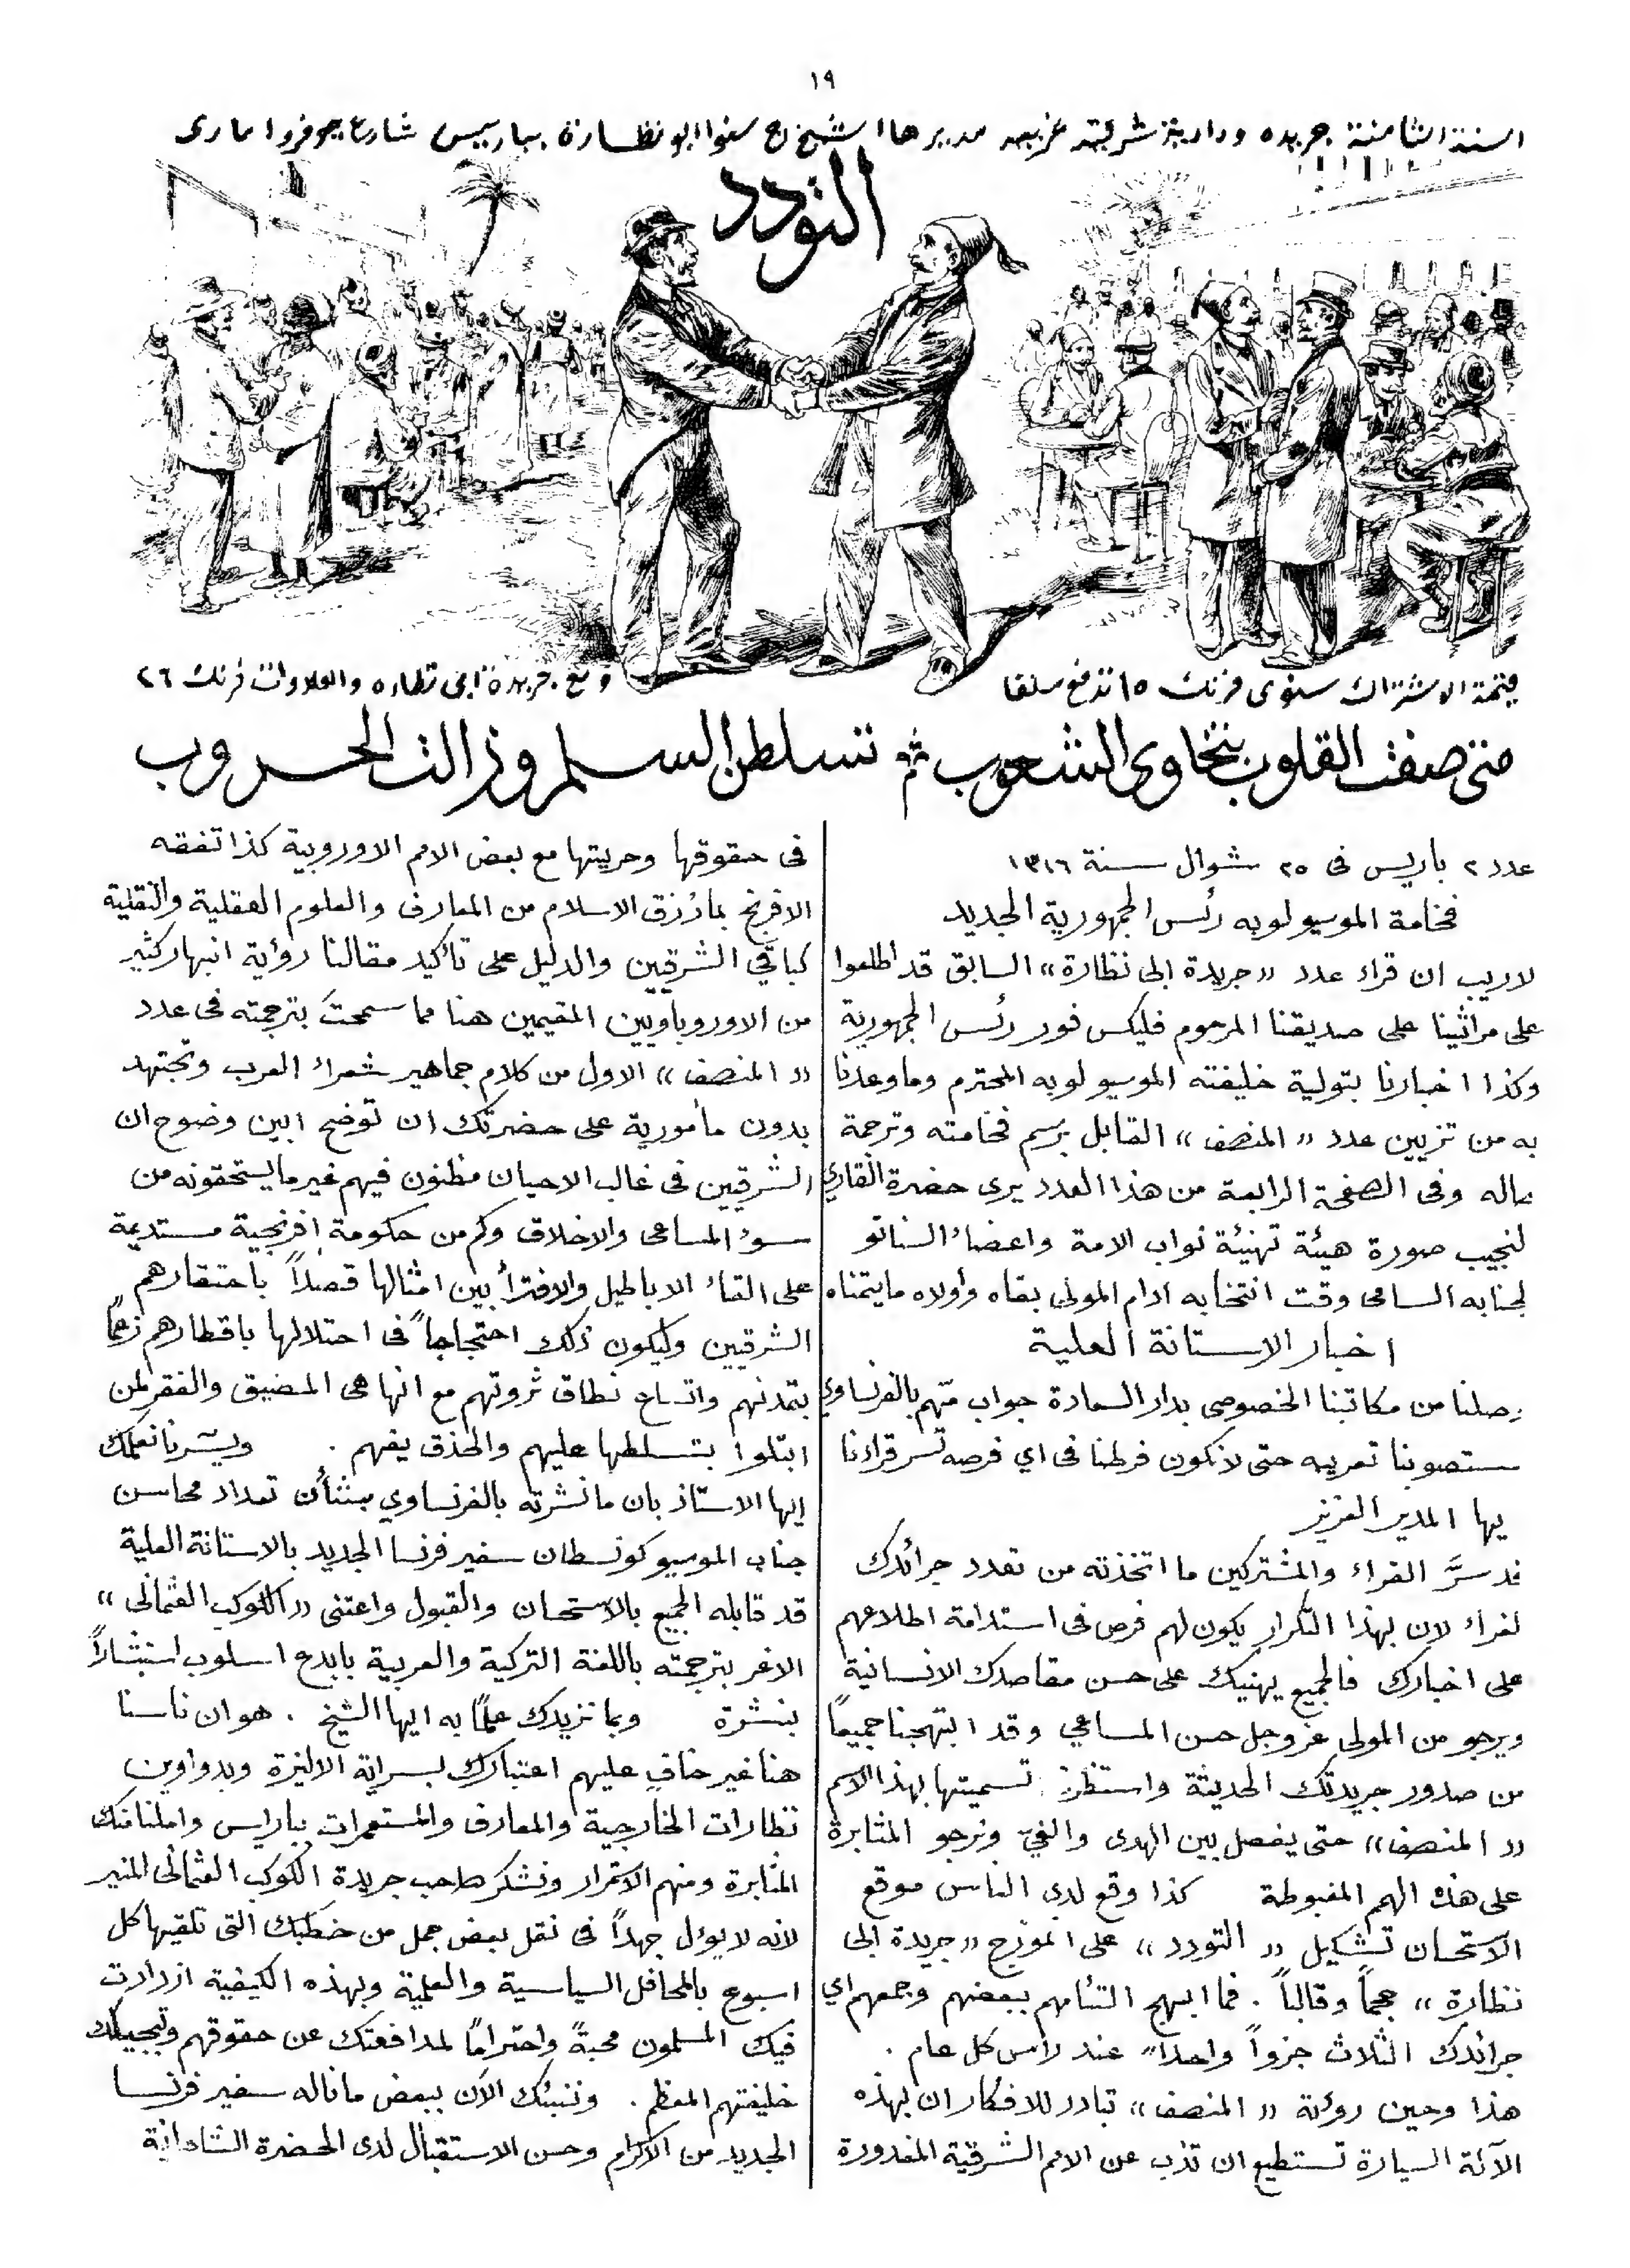 ١٩
السنة الثامنة جريده ودادية شرقية غربيه مديرها الشيخ ج سنوا ابو نظارة بباريس شارع جوفروا مارى
التودد
قيمة الاشتراك سنوى فرنك ١٥ تدفع سلفا
ومع جريدة ابى نظاره والعلاوات فرنك ٢٦
متى صفت القلوب بتخاوى الشعوب ثم تسلطن السلم وزالت الحروب
عدد ٢ باريس فى ٢٥ شوال سنة ١٣١٦
فخامة الموسيو لوبه رئس الجمهورية الجديد
لاريب ان قراء عدد «جريدة ابى نظارة» السابق قد اطلعوا
على مراثينا على صديقنا المرحوم فليكس فور رئس الجمهورية
وكذا اخبارنا بتولية خليفته الموسيو لوبه المحترم وما وعدنا
به من تزيين عدد «المنصف» القابل برسم فخامته وترجمة
حاله وفى الصفحة الرابعة من هذا العدد يرى حضرة القارى
لنجيب صورة هيئة تهنيئة نواب الامة واعضاء السناتو
لجنابه السامى وقت انتخابه ادام المولى بقاه وأولاه ما يتمناه
اخبار الاستانة العلية
وصلنا من مكاتبنا الخصوصى بدار السعادة جواب متهم بالفرنساوي
ستصوبنا تعريبه حتى لا نكون فرطنا فى اي فرصه تسر قراءنا
يها المدير العزيز
قد سرَّ القراء والمشتركين ما اتخذته من تعدد جرائدك
لغراء لان بهذا التكرار يكون لهم فرص فى استدامة اطلاعهم
على اخبارك فالجميع يهنيك على حسن مقاصدك الانسانية
ويرجو من المولى عز وجل حسن المساعي وقد ابتهجنا جميعاً
من صدور جريدتك الحديثة واستظرف تسميتها بهذا الاسم
«المنصف» حتى يفصل بين الهدى والغيّ ونرجو المثابرة
على هذه الهمم المغبوطة كذا وقع لدى الناس موقع
الاستحسان تشكيل «التودد» على انموزج «جريدة ابى
نظارة» حجماً وقالباً . فما ابهج التئامهم ببعضهم وجمعهم اي
جرائدك الثلاث جزواً واحداً عند رأس كل عام .
هذا وحين روئة «المنصف» تبادر للافكار ان بهذه
الآلة السيارة تستطيع ان تذب عن الامم الشرقية المغدورة
فى حقوقها وحريتها مع بعض الامم الاوروبية كذا تفقه
الافرنج بما رُزق الاسلام من المعارف والعلوم العقلية والنقلية
كباقي الشرقيين والدليل على تأكيد مقالنا رؤية انبهار كثير
من الاوروباويين المقيمين هنا مما سمحتَ بترجمته فى عدد
«المنصف» الاول من كلام جماهير شعراء العرب وتجتهد
بدون مأمورية على حضرتك ان توضح ابين وضوح ان
الشرقيين فى غالب الاحيان مظنون فيهم غير ما يستحقونه من
سوء المساعى والاخلاق وكم من حكومة افرنجية مستديمة
على القاء الاباطيل والافتراء بين امثالها قصداً باحتقارهم
الشرقيين وليكون ذلك احتجاجاً فى احتلالها باقطارهم زعماً
بتمدنهم واتساع نطاق ثروتهم مع انها هى المضيق والفقر لمن
ابتلوا بتسلطها عليهم والحذق يفهم . ويسرنا نعلمك
ايها الاستاذ بان ما نشرته بالفرنساوي بشأن تعداد محاسن
جناب الموسيو كونسطان سفير فرنسا الجديد بالاستانة العلية
قد قابله الجميع بالاستحسان والقبول واعتنى «الكوكب العثمانى»
الاغر بترجمته باللغة التركية والعربية بابدع اسلوب استبشاراً
بنشرة وبما نزيدك علماً به ايها الشيخ . هو ان ناسنا
هنا غير خافٍ عليهم اعتبارك بسراية الاليزة وبدواوين
نظارات الخارجية والمعارف والمستعمرات بباريس واملنا فتك
المثابرة ومنهم الاستمرار ونشكر صاحب جريدة الكوكب العثمانى المنير
لانه لا يؤل جهداً فى نقل بعض جمل من خطبك التى تلقيها كل
اسبوع بالمحافل السياسية والعلمية وبهذه الكيفية ازدادت
فيك المسلمون محبةً واحتراماً لمدافعتك عن حقوقهم وتبجيلك
خليفتهم المعظم . وننبئك الآن ببعض ما ناله سفير فرنسا
الجديد من الاكرام وحسن الاستقبال لدى الحضرة الشاهانية